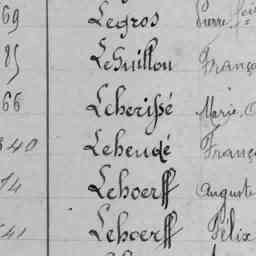 69 Legros Pierre fois
85 LeGuillou Franço
66 Lcherissé Marie,
340 Leheudé Franç
14 Lehoerff Auguste
541 Lehoerff Félix